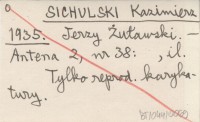 SICHULSKI Kazimierz
1935. Jerzy Żuławski. -
Antena 2, nr 38: , il.
Tylko reprod. karyka-
tury.